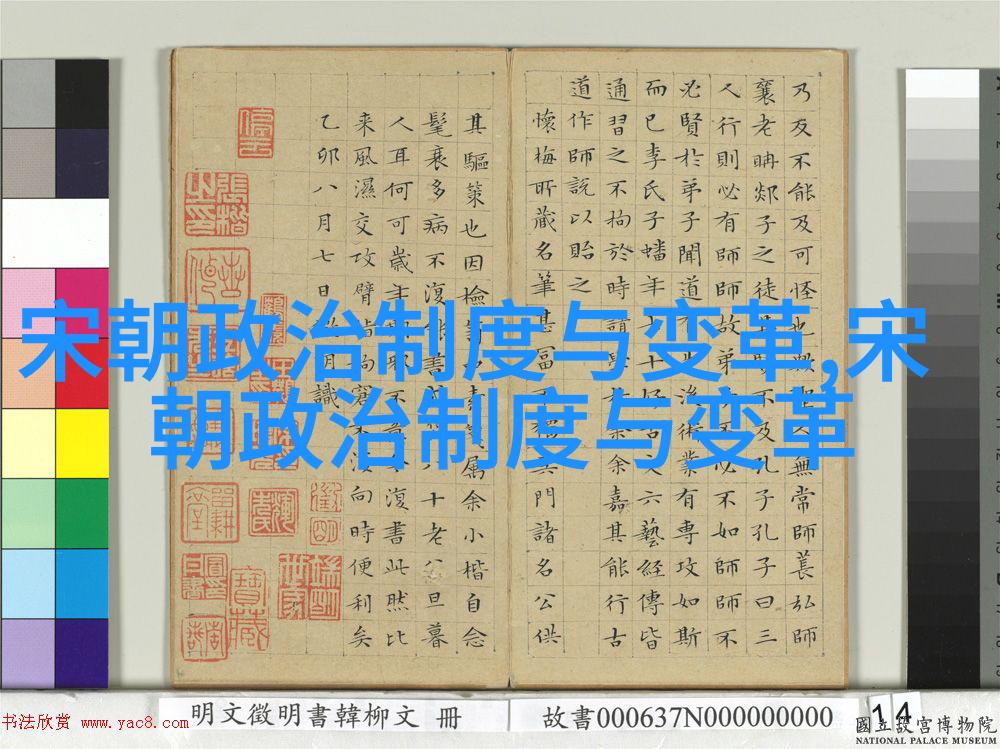 宋朝政治制度与变革,宋
朝政治制度与变革
乃反不能及可怪也歟無常師萇弘師
襄老聃郯子之徒其賢不及孔子孔子曰三
人行則必有師師故弟子不必不如師師不
必賢於弟子聞道有術業有專攻如斯
而已李氏子蟠年十好古文六藝經傳皆
通習之不拘於時請學於余余嘉其能行古
道作師說以貽之
懷梅所藏名筆甚富不獨其門諸名公供
其驅策也因檢素箋属余小楷自念
髦衰多病不復能書八十老公旦暮
人耳何可歲年耶不意今復書此然比
来風濕交攻臂指拘窘不復向時便利矣
乙卯八月七日明識
明文徵明書韓柳文 冊
故書000637N000000000
14
國立故宮博物院
NATIONAL PALACE MUSEUM
书法欣赏 www.yac8.com